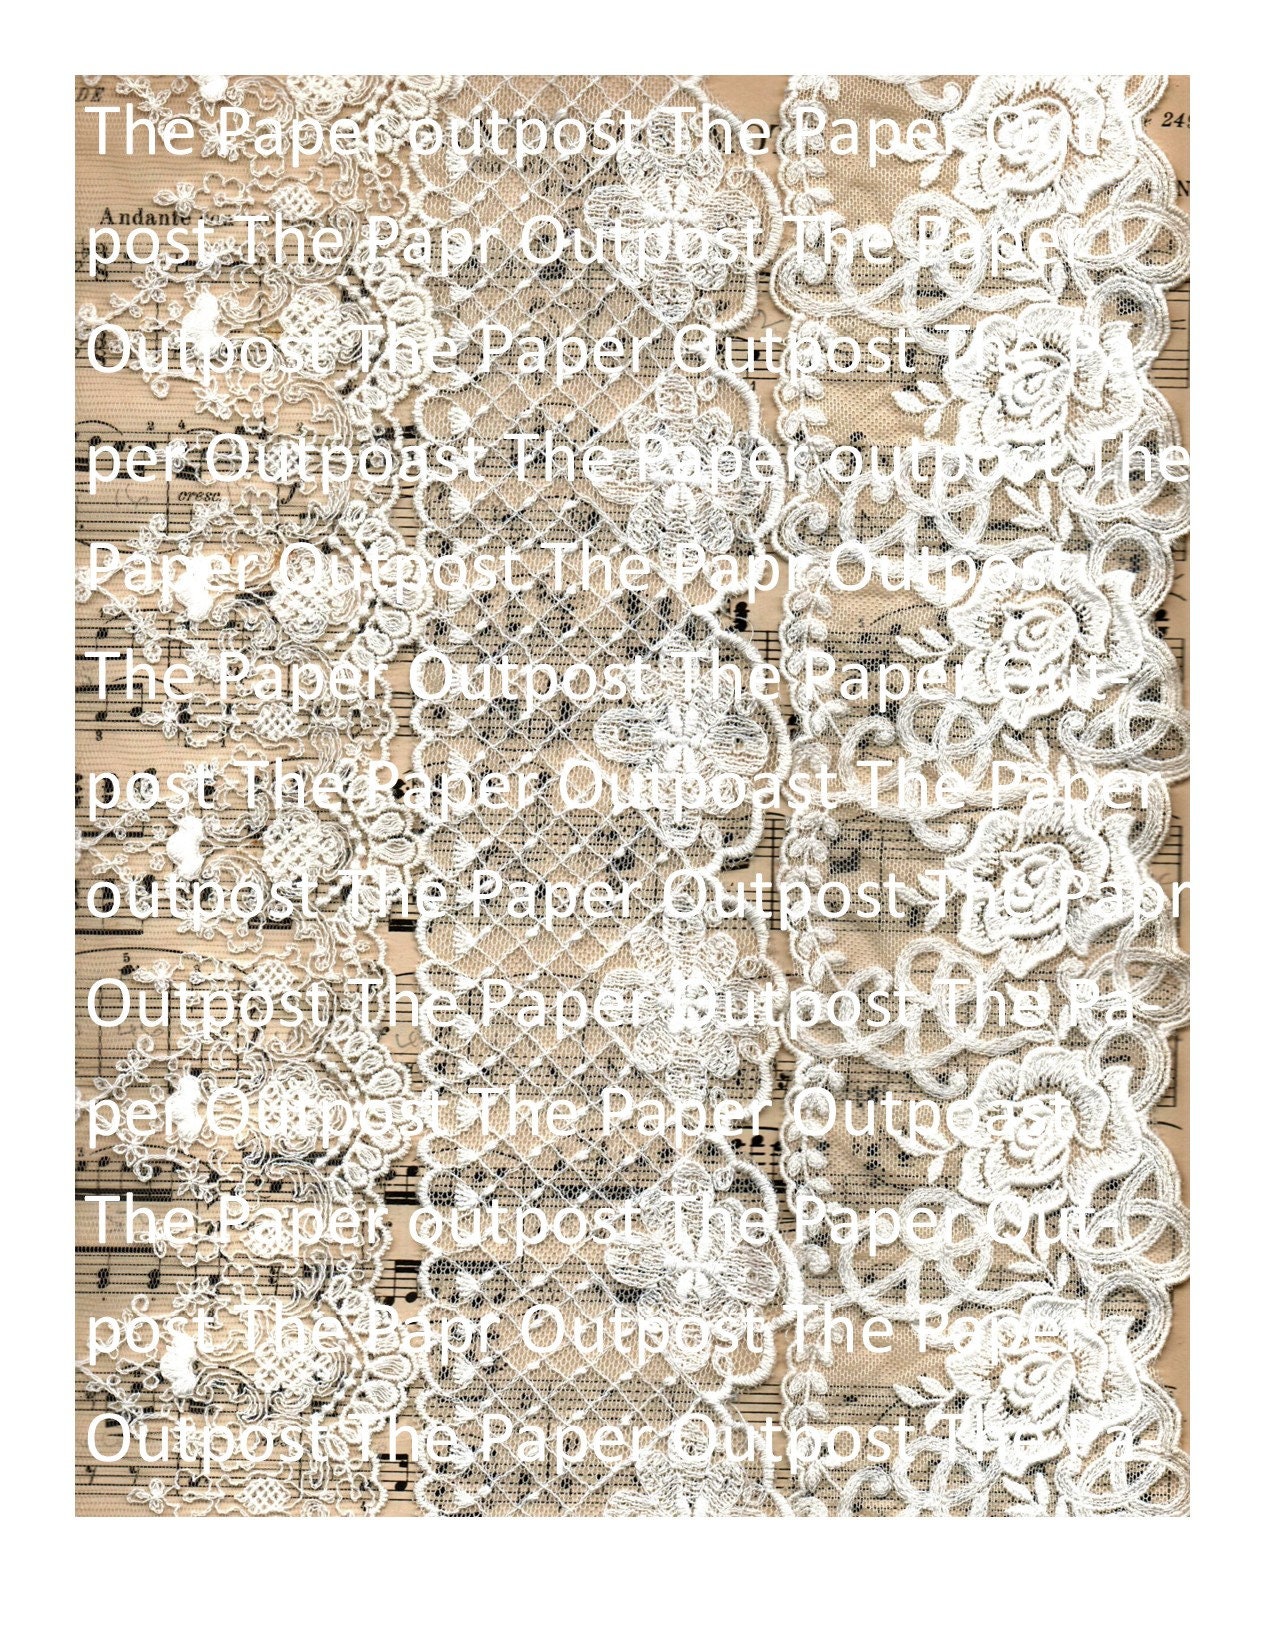 DE
The Paper outpost The Paper Out
249
Andante
post The Papr Outpost The Paper
Outpost The Paper Outpost The Pa
per Outpoast The Paper outpost The
cresc.
Paper Outpost The Papr Outpost
The Paper Outpost The Paper Out-
post The Paper Outpoast The Paper
outpost The Paper Outpost The Papr
Outpost The Paper Outpost The Pa-
per Outpost The Paper Outpoast
The Paper outpost The Paper Out-
post The Papr Outpost The Poper
Outpost The Paper Outpost The Pa